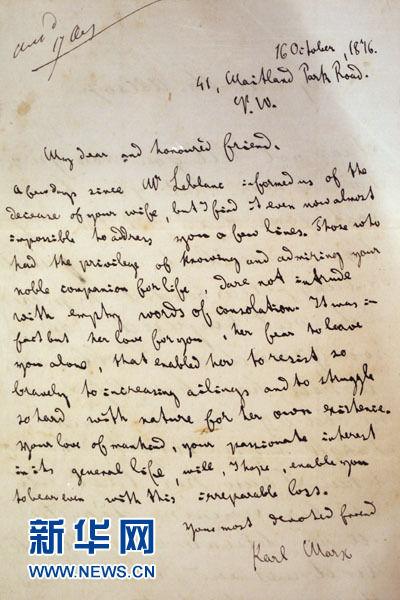 Ans'd
17 Oct
16 October, 1876.
41, Maitland Park Road.
N. W.
My dear and honour'd friend.
A few days since Mr Leblanc informed us of the
decease of your wife, but I find it even now almost
impossible to address you a few lines. Those who
had the privilege of knowing and admiring your
noble companion for life, dare not intrude
with empty words of consolation. It was in
fact but her love for you, her fear to leave
you alone, that enabled her to resist so
bravely to increasing ailings and to struggle
so hard with nature for her own existence.
Your love of mankind, your passionate interest
in its general life, will, I hope, enable you
to bear even with this irreparable loss.
Your most devoted friend
Karl Marx
新华网
WWW.NEWS.CN